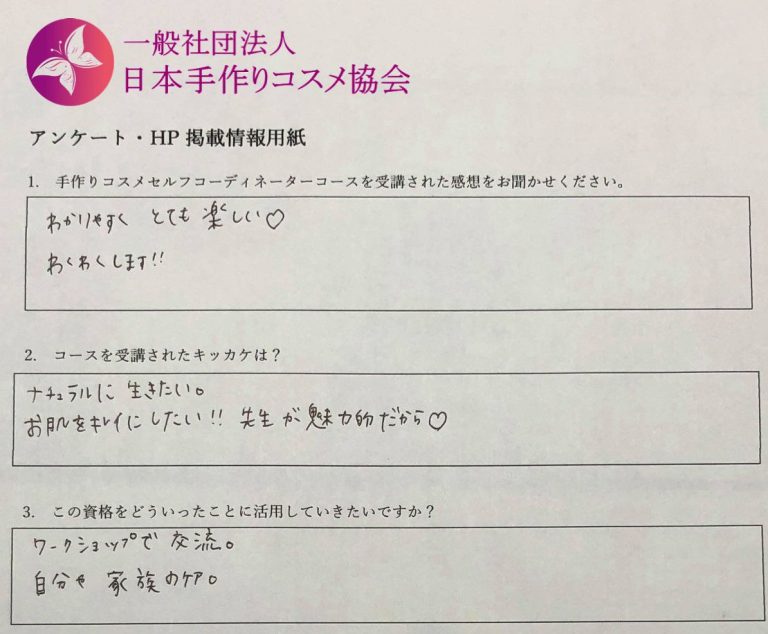 一般社団法人
日本手作りコスメ協会
アンケート・HP 掲載情報用紙
1. 手作りコスメセルフコーディネーターコースを受講された感想をお聞かせください。
わかりやすく とても 楽しい♡
わくわくします!!
2. コースを受講されたキッカケは？
ナチュラルに 生きたい。
お肌をキレイにしたい!! 先生が魅力的だから♡
3. この資格をどういったことに活用していきたいですか？
ワークショップで 交流。
自分や 家族のケア。